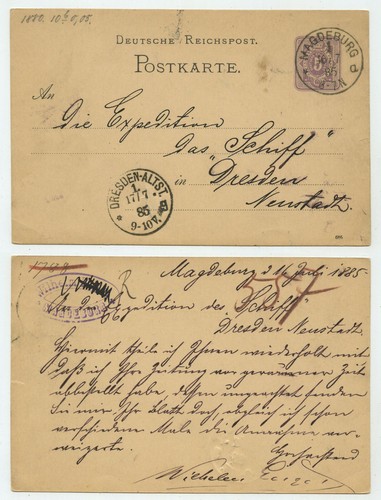 1880. 10
DEUTSCHE REICHSPOST.
POSTKARTE.
MAGDEBURG
1
85
d
An
die Expedition
das "Schiff"
in "Dresden
Neustadt.
DRESDEN-ALTST.
1.
17/7
85
9-10V.
Magdeburg d Juli 1885
An die Expedition des "Schiff"
Dresden Neustadt.
Hiermit theile ich Ihnen wiederholt mit
daß ich Ihre Zeitung vor geraumer Zeit
abbestellt habe, dessen ungeachtet senden
Sie mir Ihr Blatt doch, obgleich ich schon
verschiedene Male die Annahme ver-
weigerte.
Hochachtend
Wilhelm